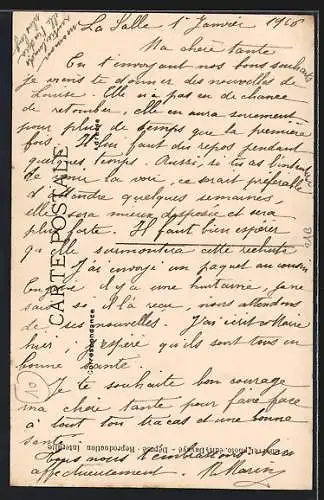 La Salle 1er Janvier 1916
Ma chère tante
En t'envoyant nos bons souhaits
je viens te donner des nouvelles de
Louise. Elle n'a pas eu de chance
de retomber, elle en aura surement
pour plus de temps que la première
fois. Il lui faut du repos pendant
quelques temps. Aussi, si tu as l'intention
de venir la voir, ce serait préférable
d'attendre quelques semaines,
elle sera mieux disposée et sera
plus forte. Il faut bien espérer
qu'elle surmontera cette rechute
J'ai envoyé un paquet au cousin
il y a une huitaine, je ne
sais si il l'a reçu, nous attendons
de ses nouvelles. J'ai écrit
hier, j'espère qu'ils sont tous en
bonne santé.
Je te souhaite bon courage
ma chère tante pour faire face
à tout ton tracas et une bonne
santé.
Tous nous t'embrassons bien
affectueusement.
CARTE POSTALE
Correspondance
Reproduction Interdite
10